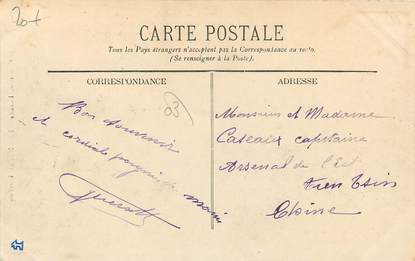 20f
CARTE POSTALE
Tous les Pays étrangers n'acceptent pas la Correspondance au recto.
(Se renseigner à la Poste).
CORRESPONDANCE
ADRESSE
03
Bon souvenir
et cordiale poignée de main
Monsieur et Madame
Cazeaux capitaine
Arsenal de l'Est
Tien Tsin
Chine